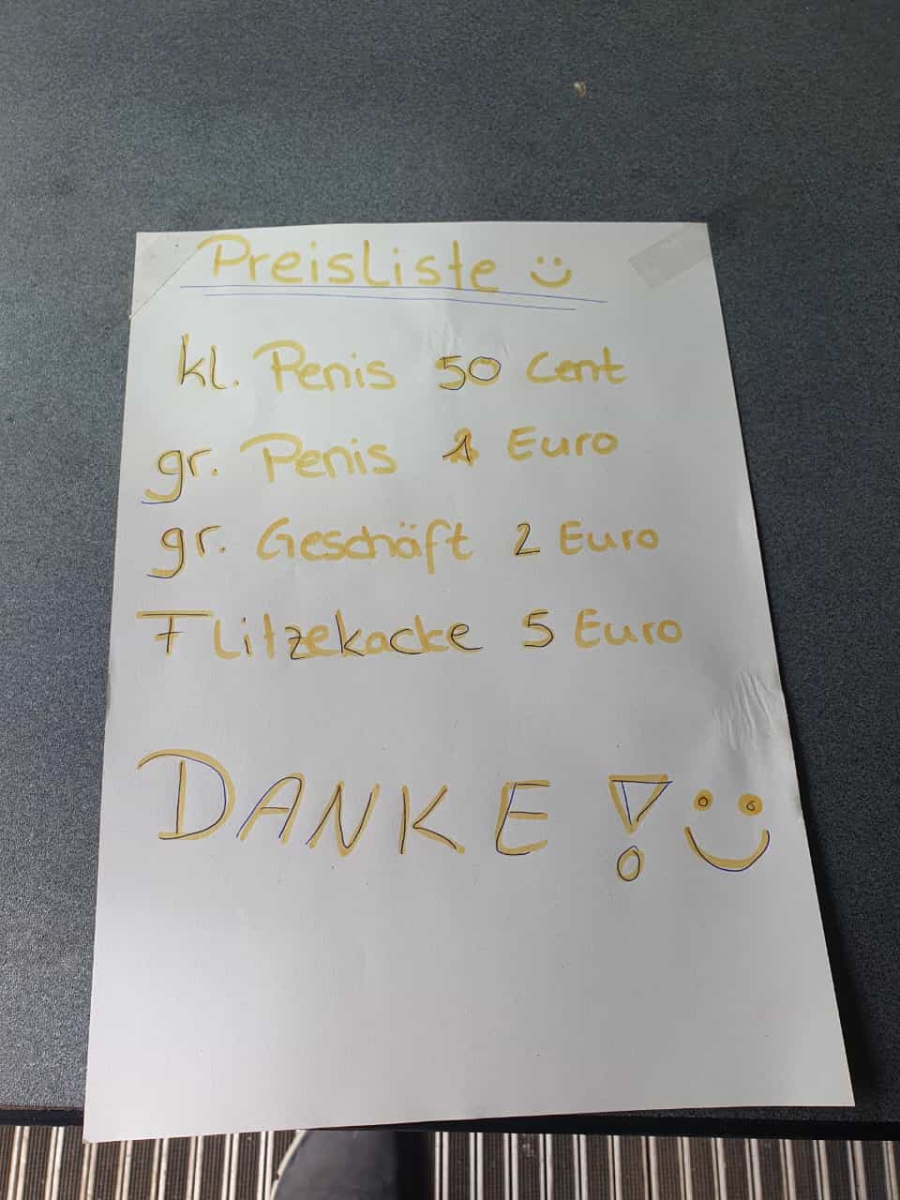 Preisliste
kl. Penis 50 Cent
gr. Penis 1 Euro
gr. Geschäft 2 Euro
Flitzekacke 5 Euro
DANKE!